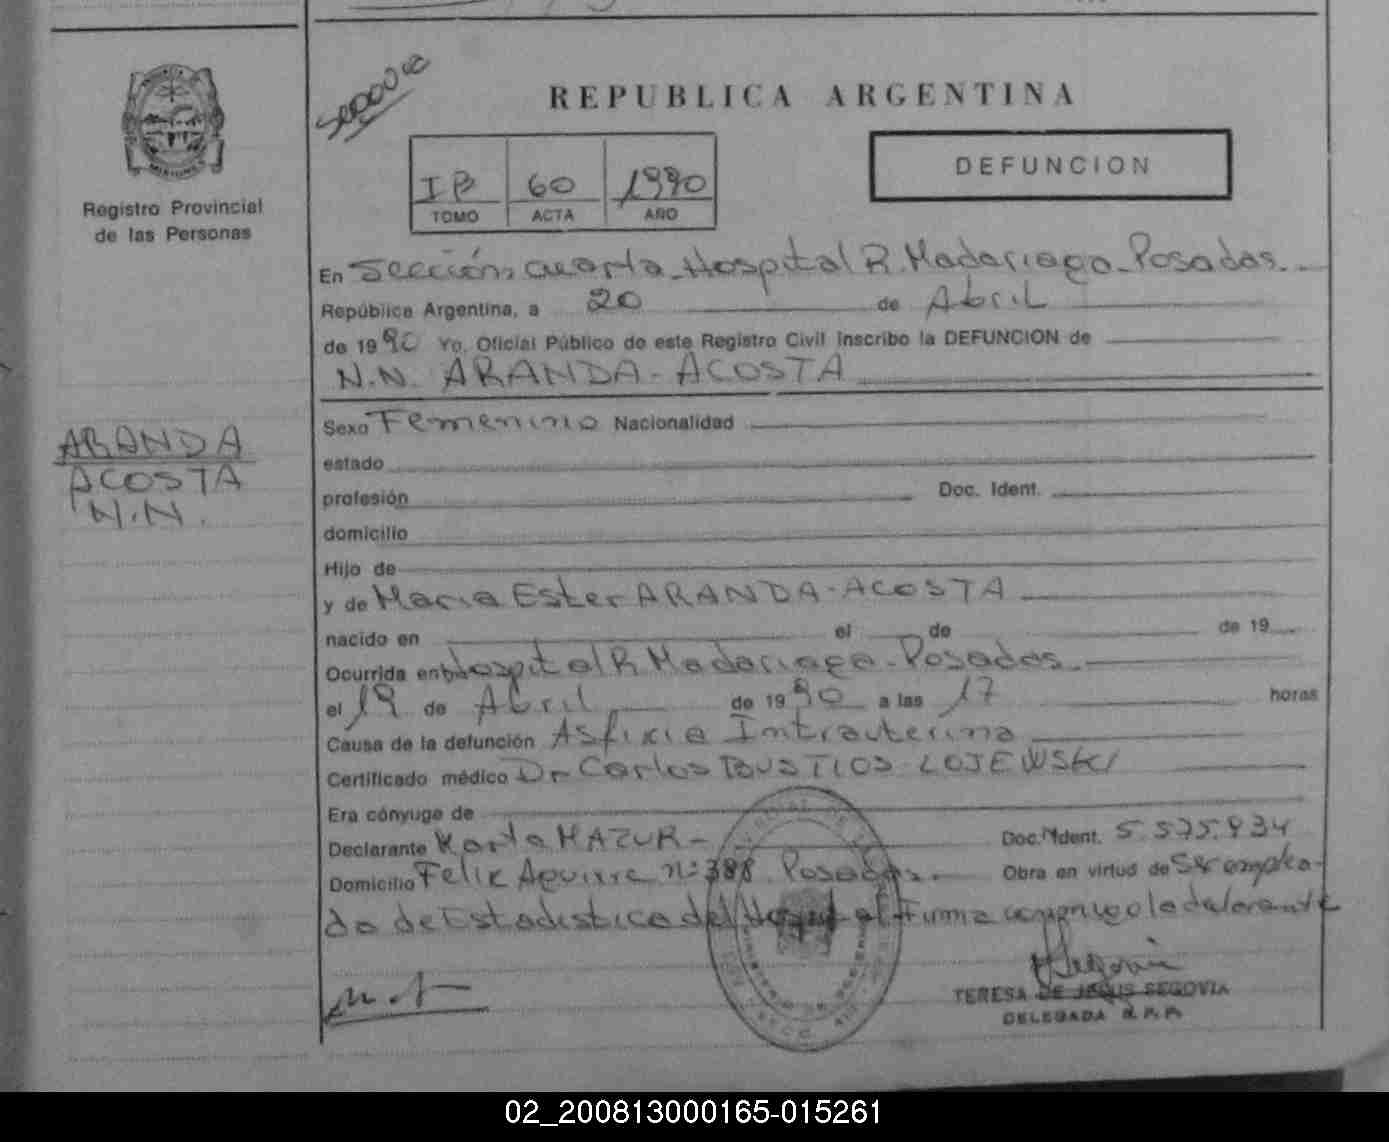 REPUBLICA ARGENTINA
IB 60 1990
TOMO ACTA AÑO
DEFUNCION
MISIONES
Registro Provincial
de las Personas
En Sección cuarta Hospital R. Madariaga - Posadas
República Argentina, a 20 de Abril
de 1990 Yo, Oficial Público de este Registro Civil inscribo la DEFUNCION de
N.N. ARANDA - ACOSTA
ARANDA
ACOSTA
N.N.
Sexo Femenino Nacionalidad
estado
profesión Doc. Ident.
domicilio
Hijo de
y de Maria Ester ARANDA - ACOSTA
nacido en el de de 19
Ocurrida en Hospital R. Madariaga - Posadas
el 19 de Abril de 1990 a las 17 horas
Causa de la defunción Asfixia Intrauterina
Certificado médico Dr Carlos BUSTIOS LOJEWSKI
Era cónyuge de
Declarante Marta MAZUR - Doc. Ident. 5.575.934
Domicilio Felix Aguirre nº 388 Posadas. Obra en virtud de Ser emplea-
da de Estadistica del Hospital Firma conmigo la declarante
TERESA DE JESUS SEGOVIA
DELEGADA R.P.P.
02_200813000165-015261